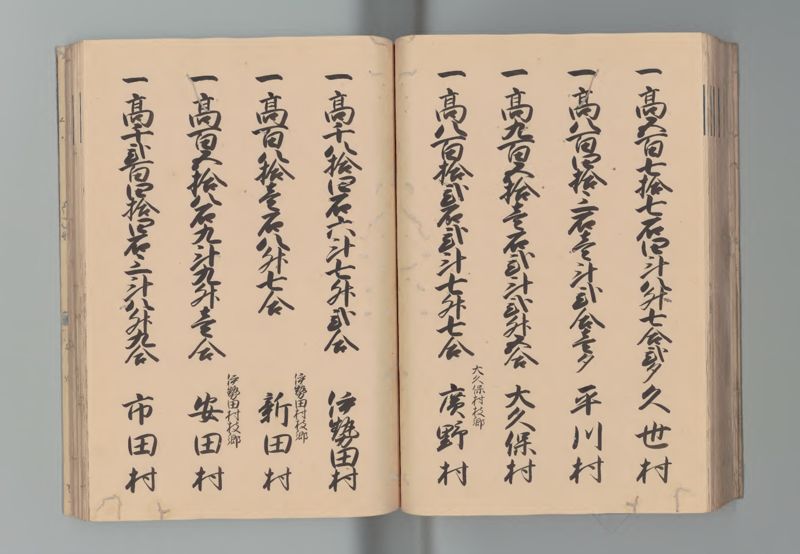 一高五百七拾七石四斗八升七合弐夕 久世村
一高八百四拾二石壱斗弐合壱夕 平川村
一高九百五拾壱石弐斗弐升五合 大久保村
大久保村枝郷
一高八百拾弐石弐斗七升七合 廣野村
一高千八拾四石六斗七升弐合 伊勢田村
伊勢田村枝郷
一高百八拾壱石八升七合 新田村
伊勢田村枝郷
一高百五拾八石九斗九升壱合 安田村
一高千弐百四拾四石二斗八升九合 市田村